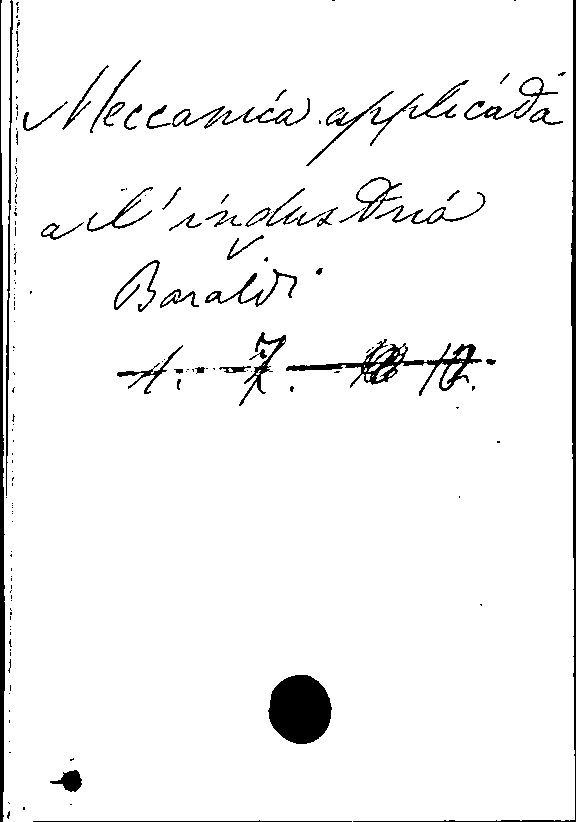 Meccanica applicada
all' industria
Baraldi
1. 7. 12.